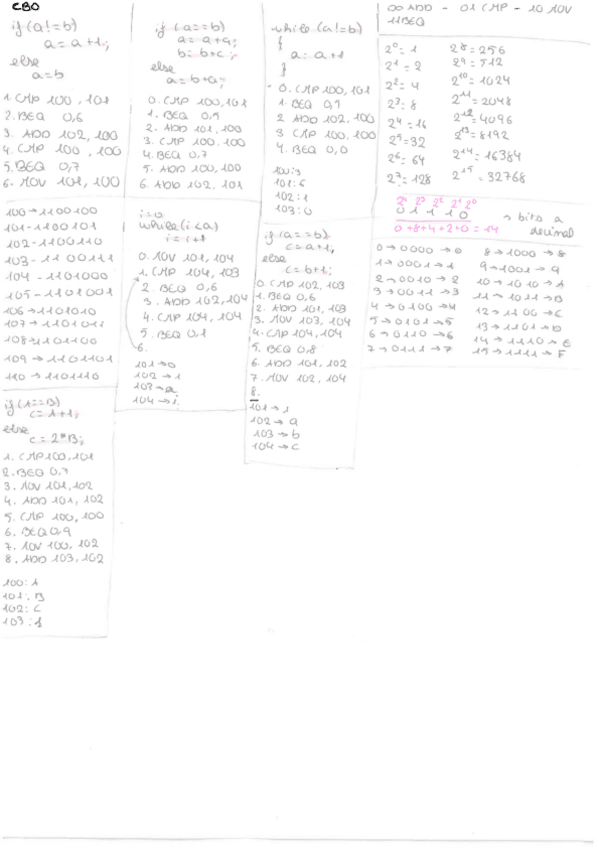 CBO
if (a!=b)
a=a+1;
else
a=b
1. CMP 100, 101
2. BEQ 0,6
3. ADD 102, 100
4. CMP 100, 100
5. BEQ 0,7
6. MOV 101, 100
100→1100100
101-1100101
102-1100110
103-1100111
104-1101000
105-1101001
106→1101010
107→1101011
108→1101100
109→1101101
110→1101110
if (1==B)
c=1+1;
else
c=2*B;
1. CMP 100,101
2. BEQ 0,7
3. MOV 101, 102
4. ADD 101, 102
5. CMP 100, 100
6. BEQ 0,9
7. MOV 100, 102
8. ADD 103, 102
100: A
101: B
102: C
103: 1
if (a==b)
a=a+a;
b=b+c;
else
a=b+a;
0. CMP 100,101
1. BEQ 0,5
2. ADD 101, 100
3. CMP 100, 100
4. BEQ 0,7
5. ADD 100, 100
6. ADD 102, 101
i=0
while (i<a)
i=i+1
0. MOV 101, 104
1. CMP 104, 103
2. BEQ 0,6
3. ADD 102, 104
4. CMP 104, 104
5. BEQ 0,1
6.
101→0
102→1
103→a
104→i
while (a!=b)
{
a=a+1
}
0. CMP 100, 101
1. BEQ 0,5
2 ADD 102, 100
3 CMP 100, 100
4. BEQ 0,0
100:3
101:6
102:1
103:0
if (a==b)
c=a+1;
else
c=b+1;
0 CMP 102, 103
1. BEQ 0,6
2. ADD 101, 103
3. MOV 103, 104
4. CMP 104, 104
5. BEQ 0,8
6. ADD 101, 102
7. MOV 102, 104
8.
101→1
102→a
103→b
104→c
00 ADD - 01 CMP - 10 MOV
11 BEQ
2⁰=1 2⁸=256
2¹=2 2⁹=512
2²=4 2¹⁰=1024
2³=8 2¹¹=2048
2⁴=16 2¹²=4096
2⁵=32 2¹³=8192
2⁶=64 2¹⁴=16384
2⁷=128 2¹⁵=32768
0 1 1 1 0 → bits a decimal
0+8+4+2+0=14
0→0000→0 8→1000→8
1→0001→1 9→1001→9
2→0010→2 10→1010→A
3→0011→3 11→1011→B
4→0100→4 12→1100→C
5→0101→5 13→1101→D
6→0110→6 14→1110→E
7→0111→7 15→1111→F